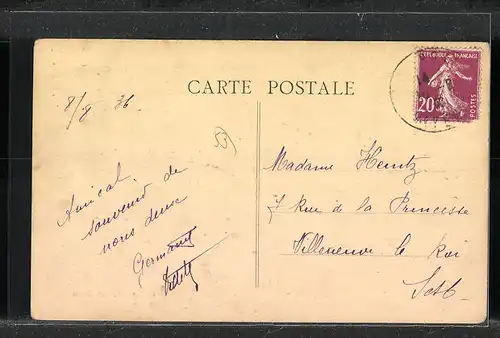 CARTE POSTALE
8/8 36
REPUBLIQUE FRANÇAISE
20c
POSTES
Amical
souvenir de
nous deux
Germaine
Madame Heintz
7 Rue de la Princesse
Villeneuve le Roi
S et O